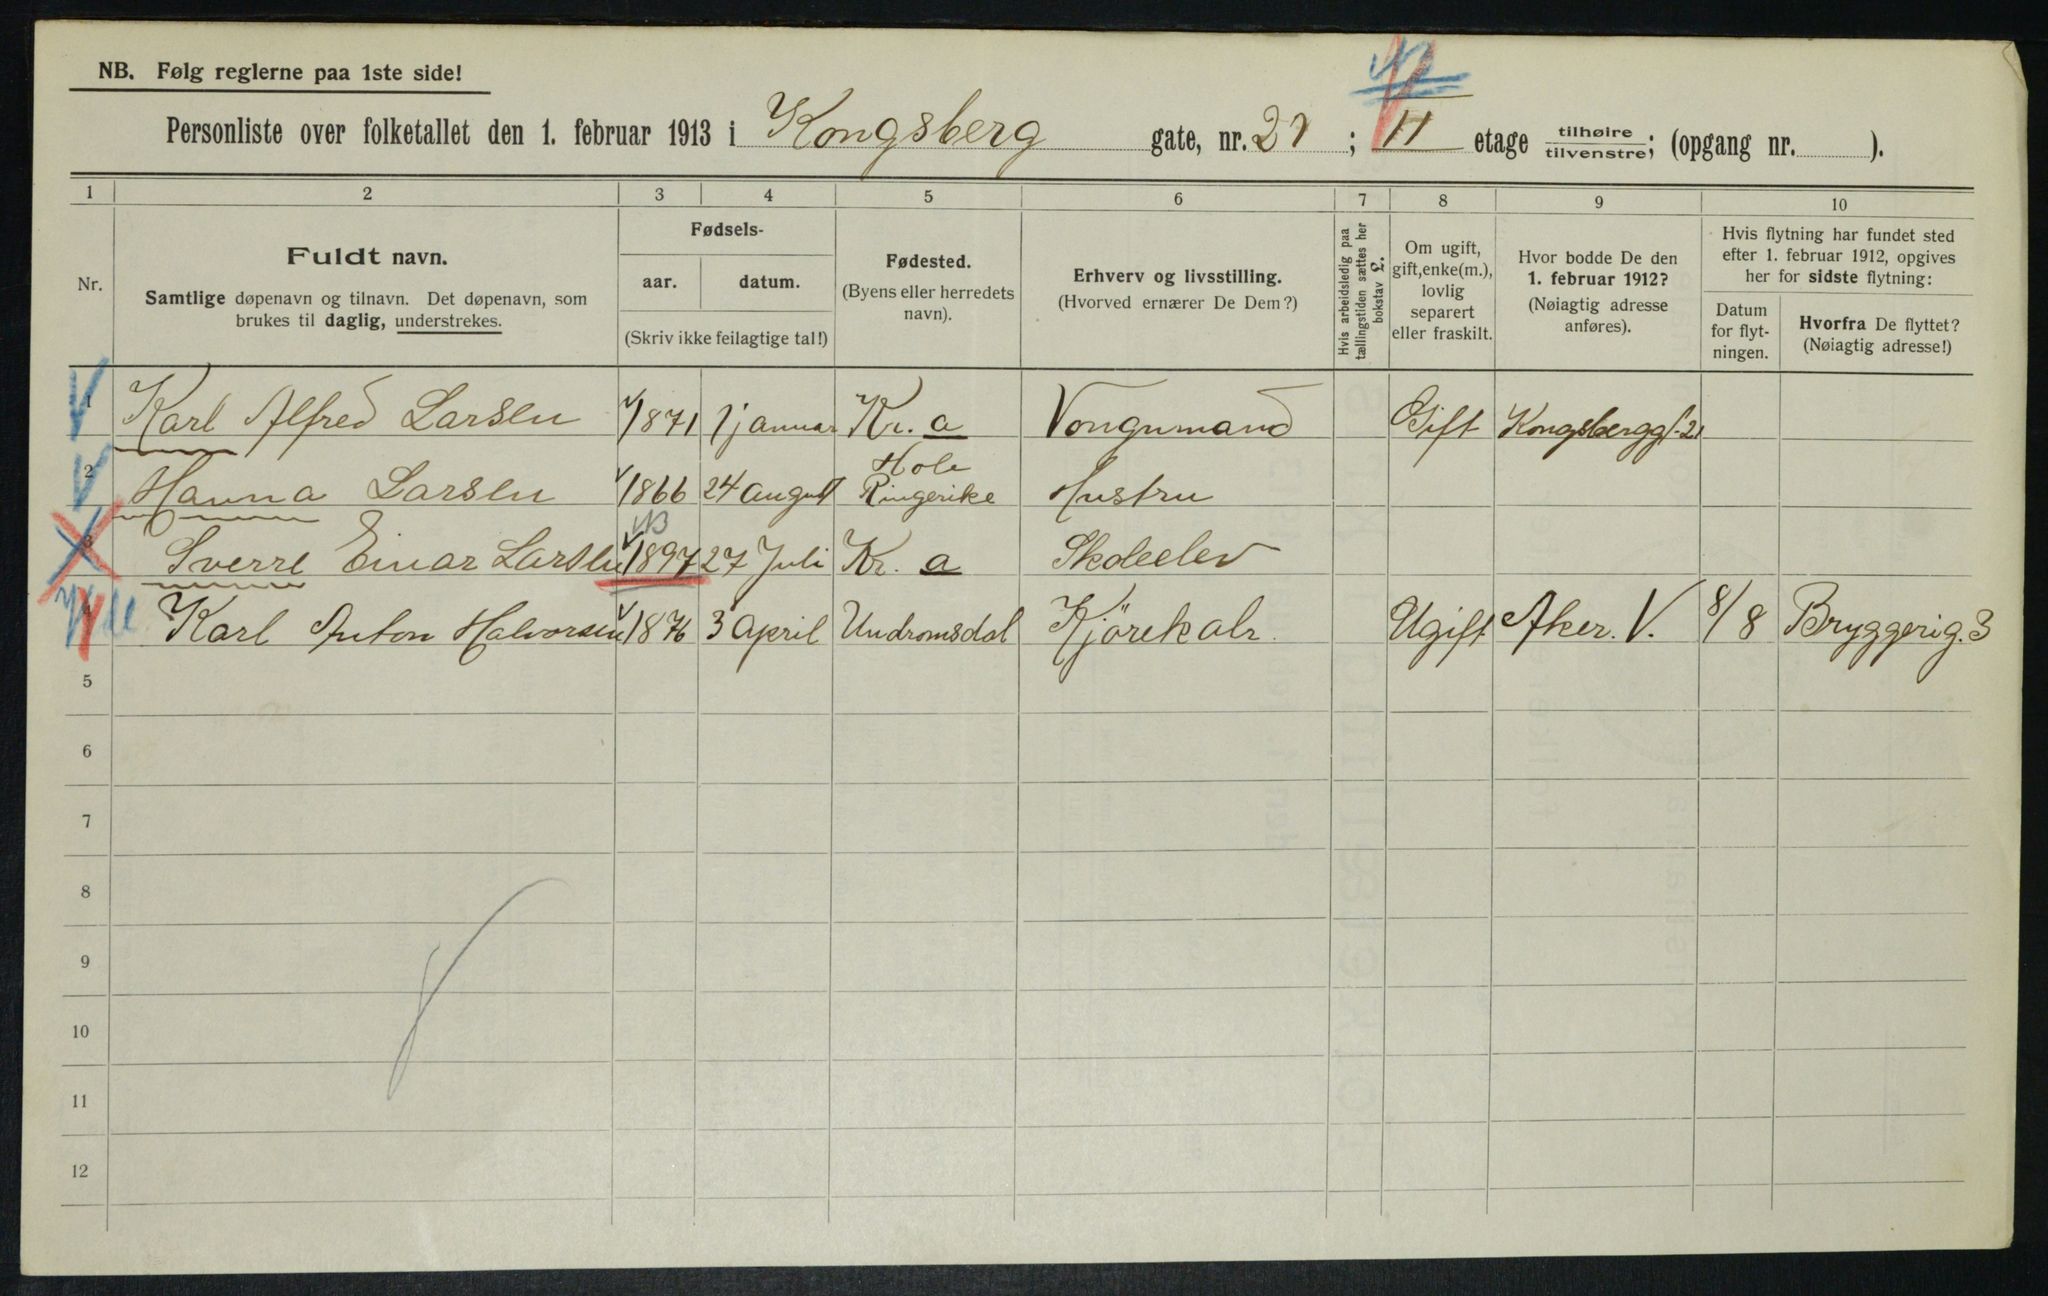 NB. Følg reglerne paa 1ste side!
Personliste over folketallet den 1. februar 1913 i Kongsberg gate, nr. 21; II etage tilhøire/tilvenstre; (opgang nr. ).
1 2 3 4 5 6 7 8 9 10
Nr.
Fuldt navn.
Samtlige døpenavn og tilnavn. Det døpenavn, som
brukes til daglig, understrekes.
Fødsels-
aar. datum.
(Skriv ikke feilagtige tal!)
Fødested.
(Byens eller herredets
navn).
Erhverv og livsstilling.
(Hvorved ernærer De Dem?)
Hvis arbeidsledig paa
tællingstiden sættes her
bokstav L.
Om ugift,
gift, enke(m.),
lovlig
separert
eller fraskilt.
Hvor bodde De den
1. februar 1912?
(Nøiagtig adresse
anføres).
Hvis flytning har fundet sted
efter 1. februar 1912, opgives
her for sidste flytning:
Datum
for flyt-
ningen.
Hvorfra De flyttet?
(Nøiagtig adresse!)
1 Karl Alfred Larsen 1871 1 januar Kr. a Vongnmand Gift Kongsbergg. 21
2 Hanna Larsen 1866 24 august Hole Ringerike Hustru
3 Sverre Einar Larsen 1897 27 Juli Kr. a Skoleelev
4 Karl Anton Halvorsen 1876 3 april Undromsdal Kjörekalr. Ugift Aker. V. 8/8 Bryggerig. 3
5
6
7
8
9
10
11
12